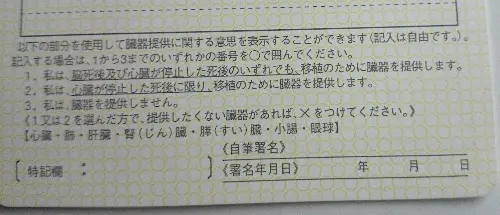 以下の部分を使用して臓器提供に関する意思を表示することができます(記入は自由です。)。
記入する場合は、1から3までのいずれかの番号を○で囲んでください。
1. 私は、脳死後及び心臓が停止した死後のいずれでも、移植のために臓器を提供します。
2. 私は、心臓が停止した死後に限り、移植のために臓器を提供します。
3. 私は、臓器を提供しません。
《1又は2を選んだ方で、提供したくない臓器があれば、×をつけてください。》
【心臓・肺・肝臓・腎(じん)臓・膵(すい)臓・小腸・眼球】
〔特記欄: 〕
《自筆署名》
《署名年月日》 年 月 日